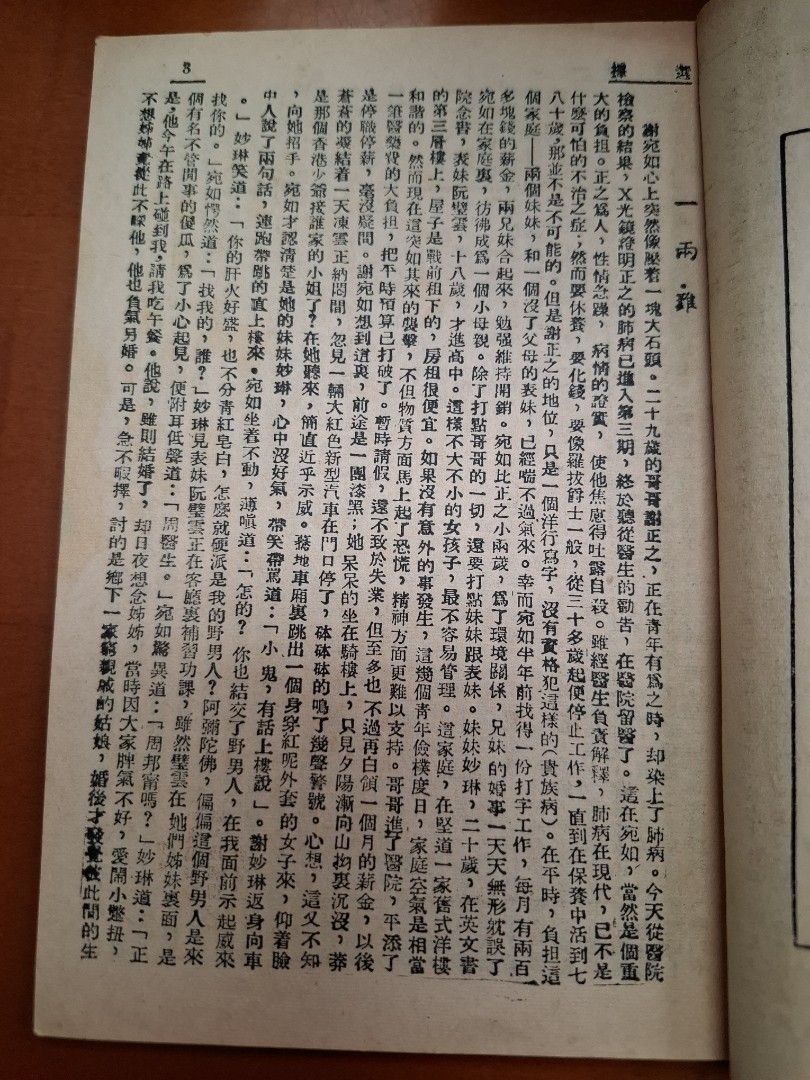 選擇
3
一 兩·難
謝宛如心上突然像壓着一塊大石頭。二十九歲的哥哥謝正之,正在青年有為之時,却染上了肺病。今天從醫院
檢察的結果,X光鏡證明正之的肺病已進入第三期,終於聽從醫生的勸告,在醫院留醫了。這在宛如,當然是個重
大的負担。正之為人,性情急躁,病情的證實,使他焦慮得吐露自殺。雖經醫生負責解釋,肺病在現代,已不是
什麼可怕的不治之症;然而要休養,要化錢,要像羅拔爵士一般,從三十多歲起便停止工作,一直到在保養中活到七
八十歲,那並不是不可能的。但是謝正之的地位,只是一個洋行寫字,沒有資格犯這樣的(貴族病)。在平時,負担這
個家庭——兩個妹妹,和一個沒了父母的表妹,已經喘不過氣來。幸而宛如半年前找得一份打字工作,每月有兩百
多塊錢的薪金,兩兄妹合起來,勉强維持開銷。宛如比正之小兩歲,為了環境關係,兄妹的婚事一天天無形躭誤了
宛如在家庭裏,彷彿成為一個小母親。除了打點哥哥的一切,還要打點妹妹跟表妹。妹妹妙琳,二十歲,在英文書
院念書,表妹阮璧雲,十八歲,才進高中。這樣不大不小的女孩子,最不容易管理。這家庭,在堅道一家舊式洋樓
的第三層樓上,屋子是戰前租下的,房租很便宜。如果沒有意外的事發生,這幾個青年儉樸度日,家庭空氣是相當
和諧的。然而現在這突如其來的襲擊,不但物質方面馬上起了恐慌,精神方面更難以支持。哥哥進了醫院,平添了
一筆醫藥費的大負担,把平時預算已打破了。暫時請假,還不致於失業,但至多也不過再白領一個月的薪金,以後
是停職停薪,毫沒疑問。謝宛如想到這裏,前途是一團漆黑;她呆呆的坐在騎樓上,只見夕陽漸向山拗裏沉沒,莽
蒼蒼的凝結着一天凍雲正納悶間,忽見一輛大紅色新型汽車在門口停了,砵砵砵的鳴了幾聲警號。心想,這又不知
是那個香港少爺接誰家的小姐了?在她聽來,簡直近乎示威。驀地車廂裏跳出一個身穿紅呢外套的女子來,仰着臉
,向她招手。宛如才認清楚是她的妹妹妙琳,心中沒好氣,帶笑帶罵道:「小鬼,有話上樓說」。謝妙琳返身向車
中人說了兩句話,連跑帶跳的直上樓來。宛如坐着不動,薄嗔道:「怎的?你也結交了野男人,在我面前示起威來
。」妙琳笑道:「你的肝火好盛,也不分青紅皂白,怎麼就硬派是我的野男人?阿彌陀佛,偏偏這個野男人是來
找你的。」宛如愕然道:「找我的,誰?」妙琳見表妹阮璧雲正在客廳裏補習功課,雖然璧雲在她們姊妹裏面,是
個有名不管閒事的傻瓜,為了小心起見,便附耳低聲道:「周醫生。」宛如驚異道:「周邦甯嗎?」妙琳道:「正
是,他今午在路上碰到我,請我吃午餐。他說,雖則結婚了,却日夜想念姊姊,當時因大家脾氣不好,愛鬧小蹩扭,
不想姊姊竟從此不睬他,他也負氣另婚。可是,急不暇擇,討的是鄉下一家窮親戚的姑娘,婚後才發覺彼此間的生